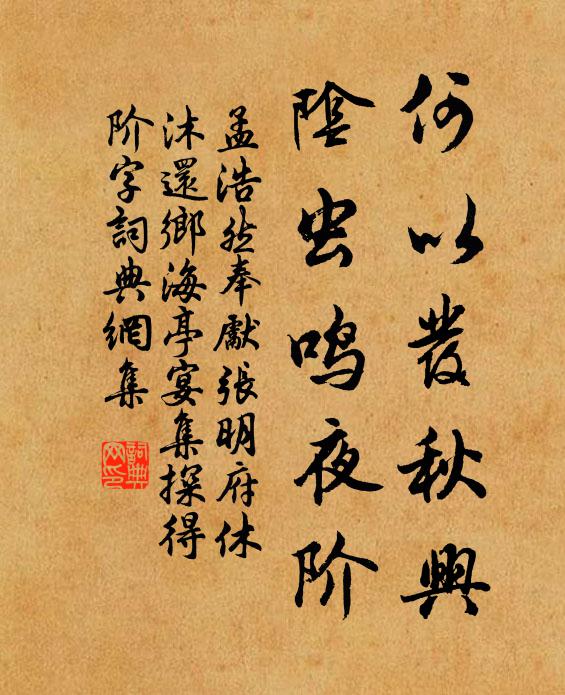 何以發秋興
陰虫鳴夜阶
孟浩然奉獻張明府休
沐還鄉海亭宴集探得
阶字詞典網集
詞典
网印